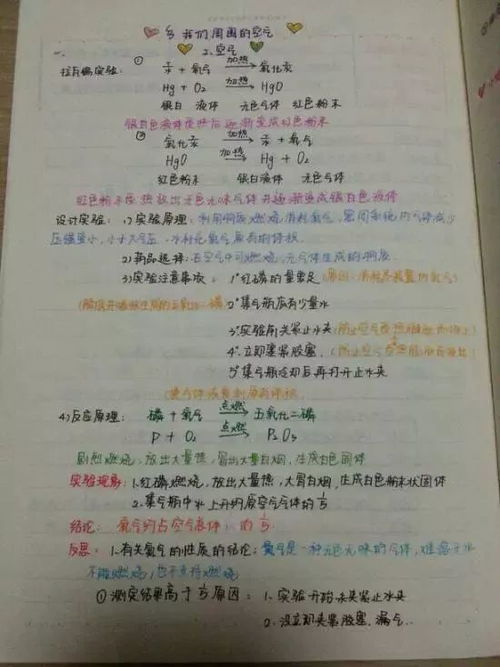 我们周围的空气
2.空气
拉瓦锡实验: ① 汞 + 氧气 加热→ 氧化汞
Hg + O₂ 加热→ HgO
银白 液体 无色气体 红色粉末
银白色液体受热后逐渐变成红色粉末
② 氧化汞 加热→ 汞 + 氧气
HgO 加热→ Hg + O₂
红色粉末 银白液体 无色气体
红色粉末受热放出无色无味气体并逐渐变成银白色液体
设计实验: 1)实验原理: 利用物质燃烧,消耗氧气,密闭系统内气体减少
压强变小,小于大气压,水补充氧气原有的体积.
2)药品选择: 在空气中可燃烧,无气体生成的物质.
3)实验注意事项: 1°红磷的量要足
2°集气瓶底有少量水
3°实验前夹紧止水夹
4°立即塞紧胶塞.
5°集气瓶冷却后再打开止水夹
4)反应原理: 磷 + 氧气 点燃→ 五氧化二磷
P + O₂ 点燃→ P₂O₅
剧烈燃烧,放出大量热,冒出大量白烟,生成白色固体
实验现象: 1.红磷燃烧,放出大量热,大冒白烟,生成白色粉末状固体
2.集气瓶中水上升约原空气气体的1/5
结论: 氧气约占空气体积的1/5
反思: 1.有关氧气的性质的结论: 氧气是一种无色无味的气体,难溶于水
不能燃烧,
①测定结果高于1/5原因: 1.实验开始未夹紧止水夹
2.没立即夹紧胶塞.漏气..